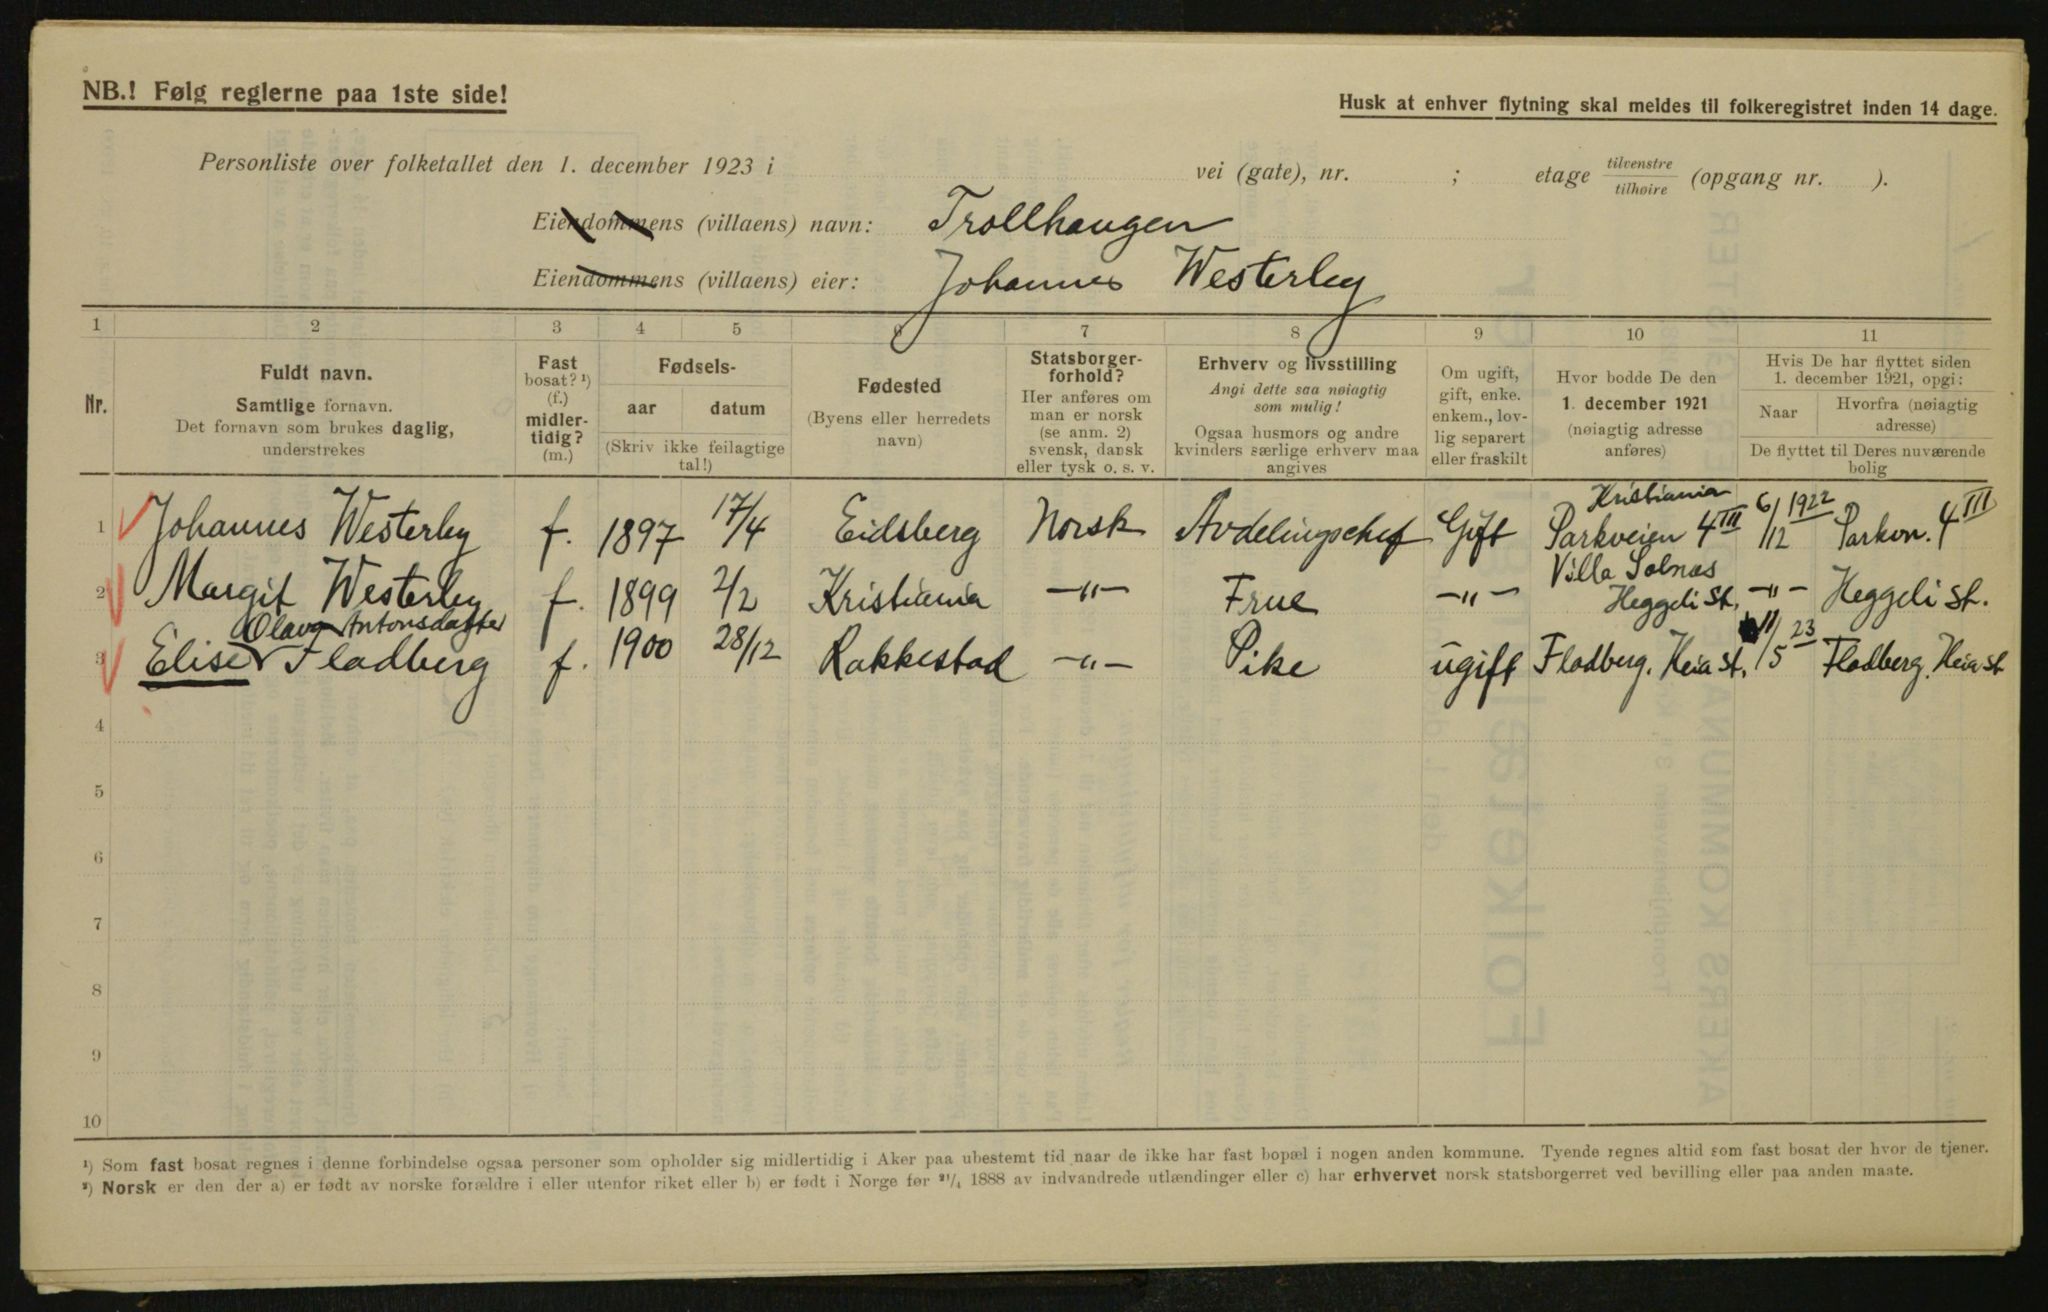 NB.! Følg reglerne paa 1ste side!
Husk at enhver flytning skal meldes til folkeregistret inden 14 dage.
Personliste over folketallet den 1. december 1923 i vei (gate), nr. ; etage tilvenstre/tilhøire (opgang nr. ).
Eiendommens (villaens) navn: Trollhaugen
Eiendommens (villaens) eier: Johannes Westerby
1 2 3 4 5 6 7 8 9 10 11
Nr.
Fuldt navn.
Samtlige fornavn.
Det fornavn som brukes daglig,
understrekes
Fast
bosat? ¹)
(f.)
midler-
tidig?
(m.)
Fødsels-
aar datum
(Skriv ikke feilagtige
tal!)
Fødested
(Byens eller herredets
navn)
Statsborger-
forhold?
Her anføres om
man er norsk
(se anm. 2)
svensk, dansk
eller tysk o. s. v.
Erhverv og livsstilling
Angi dette saa nøiagtig
som mulig!
Ogsaa husmors og andre
kvinders særlige erhverv maa
angives
Om ugift,
gift, enke.
enkem., lov-
lig separert
eller fraskilt
Hvor bodde De den
1. december 1921
(nøiagtig adresse
anføres)
Hvis De har flyttet siden
1. december 1921, opgi:
Naar
Hvorfra (nøiagtig
adresse)
De flyttet til Deres nuværende
bolig
Kristiania
1 Johannes Westerby f. 1897 17/4 Eidsberg Norsk Avdelingschef Gift Parkveien 4 III 6/12 1922 Parkvn. 4 III
Villa Solnæs
2 Margit Westerby f. 1899 2/2 Kristiania -"- Frue -"- Heggeli St. -"- Heggeli St.
Olava Antonsdatter
3 Elise Fladberg f. 1900 28/12 Rakkestad -"- Pike ugift Fladberg. Heia st. 11/5 23 Fladberg. Heia st
4
5
6
7
8
9
10
¹) Som fast bosat regnes i denne forbindelse ogsaa personer som opholder sig midlertidig i Aker paa ubestemt tid naar de ikke har fast bopæl i nogen anden kommune. Tyende regnes altid som fast bosat der hvor de tjener.
²) Norsk er den der a) er født av norske forældre i eller utenfor riket eller b) er født i Norge før 21/4 1888 av indvandrede utlændinger eller c) har erhvervet norsk statsborgerret ved bevilling eller paa anden maate.